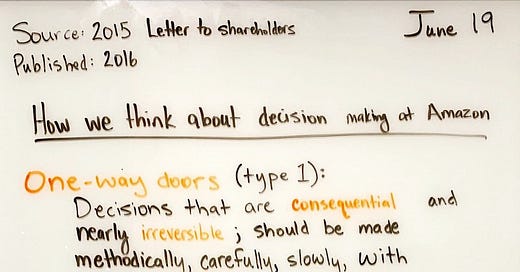 Source: 2015 Letter to shareholders
June 19
Published: 2016
How we think about decision making at Amazon
One-way doors (type 1):
Decisions that are consequential and
nearly irreversible ; should be made
methodically, carefully, slowly, with